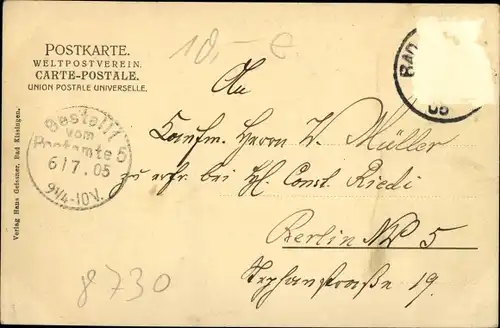 POSTKARTE.
WELTPOSTVEREIN.
CARTE-POSTALE.
UNION POSTALE UNIVERSELLE.
10,- €
BAD
05
Bestellt
vom
Postamte 5
6/7.05
9¼-10V.
Verlag Hans Geissner, Bad Kissingen.
An
Kaufm. Herrn V. Müller
zu erfr. bei H. Const. Riedi
Berlin NW 5
Stephanstraße 19.
8730